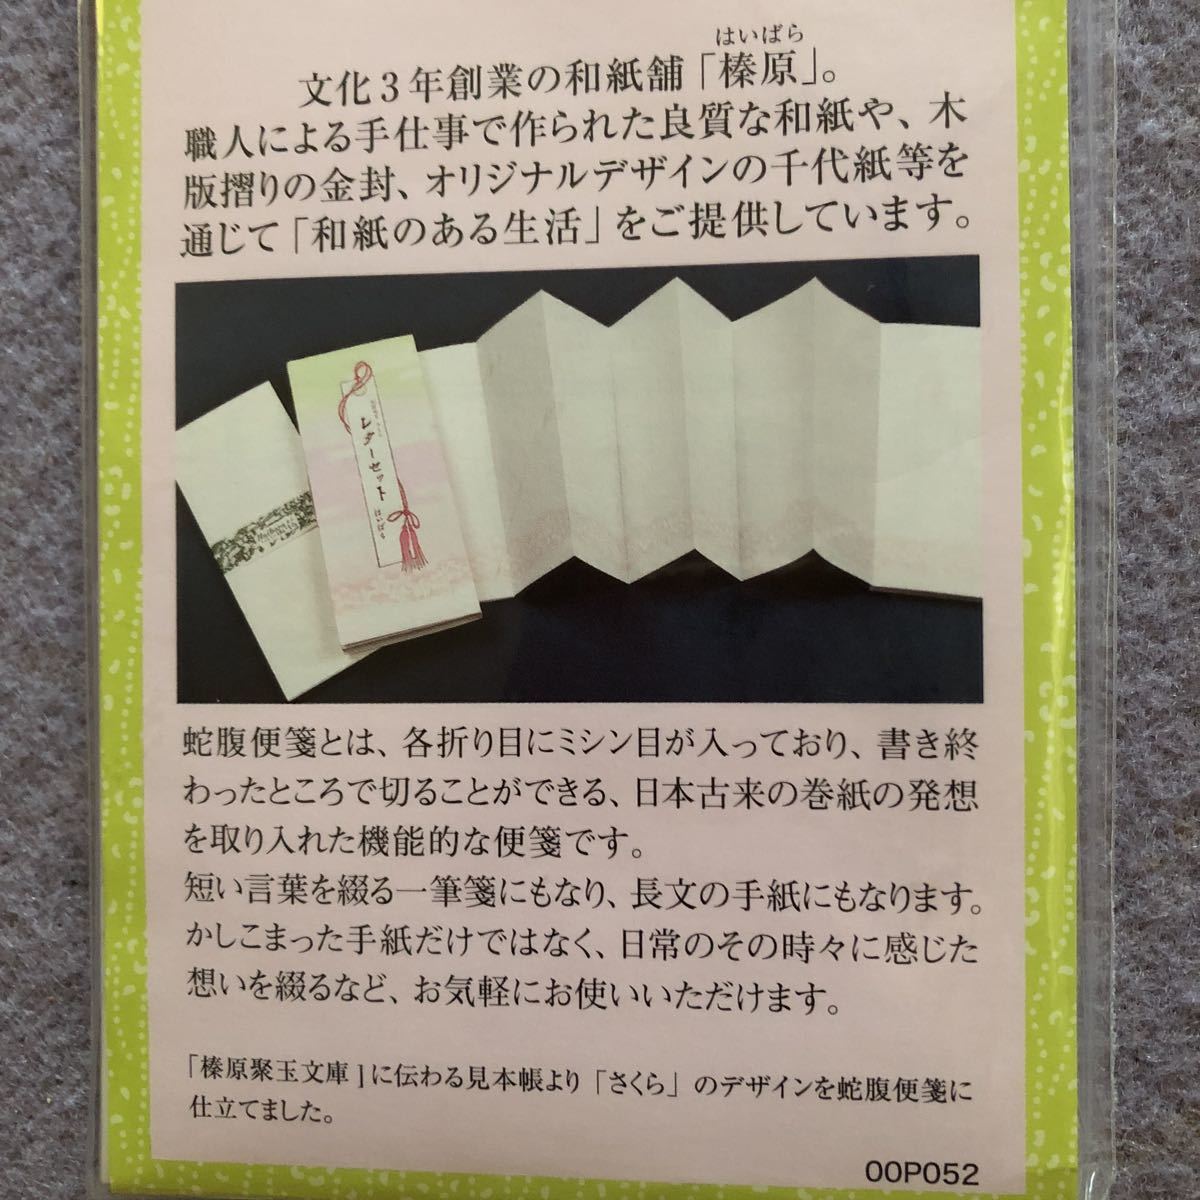 はいばら
文化3年創業の和紙舗「榛原」。
職人による手仕事で作られた良質な和紙や、木
版摺りの金封、オリジナルデザインの千代紙等を
通じて「和紙のある生活」をご提供しています。
レターセット
はいばら
蛇腹便箋とは、各折り目にミシン目が入っており、書き終
わったところで切ることができる、日本古来の巻紙の発想
を取り入れた機能的な便箋です。
短い言葉を綴る一筆箋にもなり、長文の手紙にもなります。
かしこまった手紙だけではなく、日常のその時々に感じた
想いを綴るなど、お気軽にお使いいただけます。
「榛原聚玉文庫」に伝わる見本帳より「さくら」のデザインを蛇腹便箋に
仕立てました。
00P052